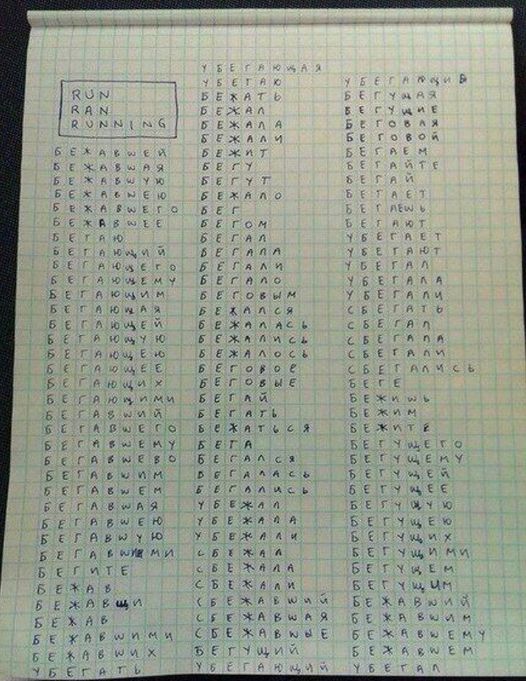 RUN
RAN
RUNNING
БЕЖАВШЕЙ
БЕЖАВШАЯ
БЕЖАВШУЮ
БЕЖАВШЕЮ
БЕЖАВШЕГО
БЕЖАВШЕЕ
БЕГАЮ
БЕГАЮЩИЙ
БЕГАЮЩЕГО
БЕГАЮЩЕМУ
БЕГАЮЩИМ
БЕГАЮЩАЯ
БЕГАЮЩЕЙ
БЕГАЮЩУЮ
БЕГАЮЩЕЮ
БЕГАЮЩЕЕ
БЕГАЮЩИХ
БЕГАЮЩИМИ
БЕГАВШИЙ
БЕГАВШЕГО
БЕГАВШЕМУ
БЕГАВШЕВО
БЕГАВШИМ
БЕГАВШЕМ
БЕГАВШАЯ
БЕГАВШЕЮ
БЕГАВШУЮ
БЕГАВШИМИ
БЕГИТЕ
БЕЖАВ
БЕЖАВЩИ
БЕЖАВ
БЕЖАВШИМИ
БЕЖАВШИХ
УБЕГАТЬ
УБЕГАЮЩАЯ
УБЕГАЮ
БЕЖАТЬ
БЕЖАЛ
БЕЖАЛА
БЕЖАЛИ
БЕЖИТ
БЕГУ
БЕГУТ
БЕЖАЛО
БЕГ
БЕГОМ
БЕГАЛ
БЕГАЛА
БЕГАЛИ
БЕГАЛО
БЕГОВЫМ
БЕЖАЛСЯ
БЕЖАЛАСЬ
БЕЖАЛИСЬ
БЕЖАЛОСЬ
БЕГОВОЕ
БЕГОВЫЕ
БЕГАЙ
БЕГАТЬ
БЕЖАТЬСЯ
БЕГА
БЕГАЛСЯ
БЕГАЛАСЬ
БЕГАЛИСЬ
УБЕЖАЛ
УБЕЖАЛА
УБЕЖАЛИ
СБЕЖАЛ
СБЕЖАЛА
СБЕЖАЛИ
СБЕЖАВШИЙ
СБЕЖАВШАЯ
СБЕЖАВШЫЕ
БЕГУЩИЙ
УБЕГАЮЩИЙ
БЕГУЩАЯ
БЕГУЩИЕ
БЕГОВАЯ
БЕГОВОЙ
БЕГАЕМ
БЕГАЙТЕ
БЕГАЙ
БЕГАЕТ
БЕГАЕШЬ
БЕГАЮТ
УБЕГАЕТ
УБЕГАЮТ
УБЕГАЛ
УБЕГАЛА
УБЕГАЛИ
СБЕГАТЬ
СБЕГАЛ
СБЕГАЛА
СБЕГАЛИ
СБЕГАЛИСЬ
БЕГЕ
БЕЖИШЬ
БЕЖИМ
БЕЖИТЕ
БЕГУЩЕГО
БЕГУЩЕМУ
БЕГУЩЕЙ
БЕГУЩЕЕ
БЕГУЩУЮ
БЕГУЩЕЮ
БЕГУЩИХ
БЕГУЩИМИ
БЕГУЩЕМ
БЕГУЩИМ
БЕЖАВШИЙ
БЕЖАВШИМ
БЕЖАВШЕМУ
БЕЖАВШЕМ
УБЕГАЛ